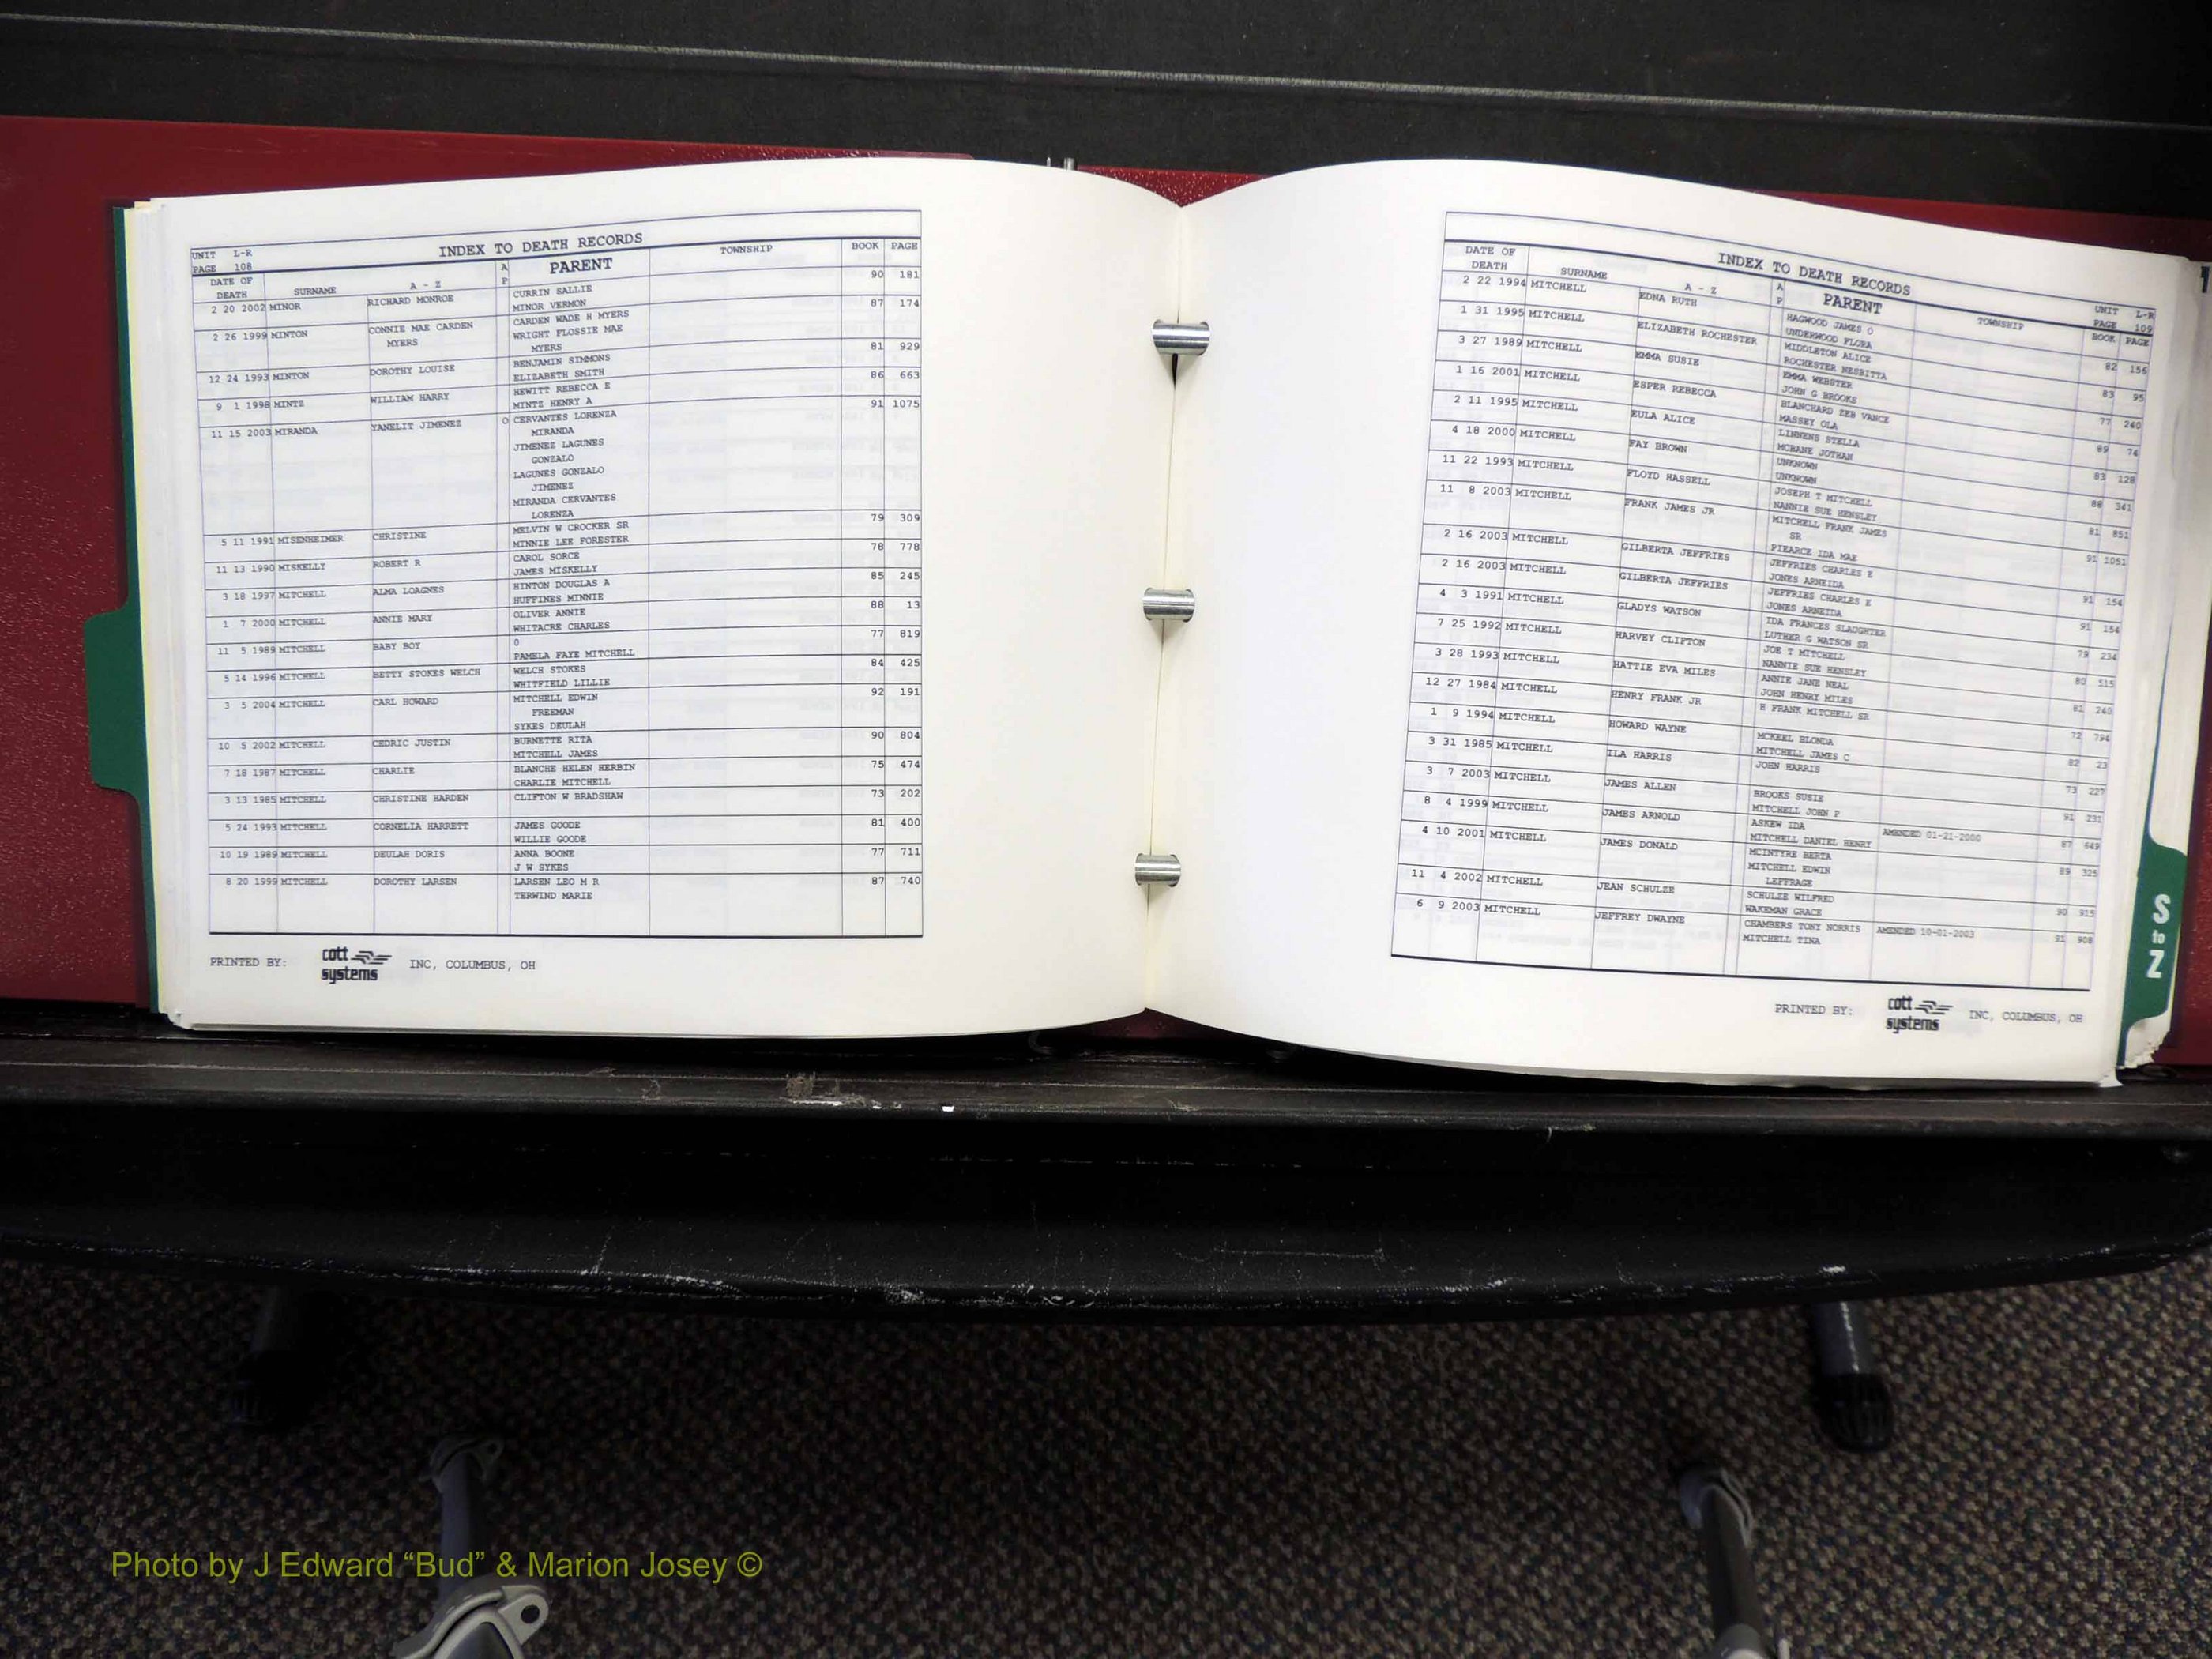 INDEX TO DEATH RECORDS
UNIT L-R
PAGE 108
DATE OF DEATH SURNAME A - Z A P PARENT TOWNSHIP BOOK PAGE
2 20 2002 MINOR RICHARD MONROE CURRIN SALLIE 90 181
MINOR VERNON
2 26 1999 MINTON CONNIE MAE CARDEN CARDEN WADE H MYERS 87 174
MYERS WRIGHT FLOSSIE MAE
MYERS
12 24 1993 MINTON DOROTHY LOUISE BENJAMIN SIMMONS 81 929
ELIZABETH SMITH
9 1 1998 MINTZ WILLIAM HARRY HEWITT REBECCA E 86 663
MINTZ HENRY A
11 15 2003 MIRANDA YANELIT JIMENEZ O CERVANTES LORENZA 91 1075
MIRANDA
JIMENEZ LAGUNES
GONZALO
LAGUNES GONZALO
JIMENEZ
MIRANDA CERVANTES
LORENZA
5 11 1991 MISENHEIMER CHRISTINE MELVIN W CROCKER SR 79 309
MINNIE LEE FORESTER
11 13 1990 MISKELLY ROBERT R CAROL SORCE 78 778
JAMES MISKELLY
3 18 1997 MITCHELL ALMA LOAGNES HINTON DOUGLAS A 85 245
HUFFINES MINNIE
1 7 2000 MITCHELL ANNIE MARY OLIVER ANNIE 88 13
WHITACRE CHARLES
11 5 1989 MITCHELL BABY BOY 0 77 819
PAMELA FAYE MITCHELL
5 14 1996 MITCHELL BETTY STOKES WELCH WELCH STOKES 84 425
WHITFIELD LILLIE
3 5 2004 MITCHELL CARL HOWARD MITCHELL EDWIN 92 191
FREEMAN
SYKES DEULAH
10 5 2002 MITCHELL CEDRIC JUSTIN BURNETTE RITA 90 804
MITCHELL JAMES
7 18 1987 MITCHELL CHARLIE BLANCHE HELEN HERBIN 75 474
CHARLIE MITCHELL
3 13 1985 MITCHELL CHRISTINE HARDEN CLIFTON W BRADSHAW 73 202
5 24 1993 MITCHELL CORNELIA HARRETT JAMES GOODE 81 400
WILLIE GOODE
10 19 1989 MITCHELL DEULAH DORIS ANNA BOONE 77 711
J W SYKES
8 20 1999 MITCHELL DOROTHY LARSEN LARSEN LEO M R 87 740
TERWIND MARIE
PRINTED BY: cott systems INC, COLUMBUS, OH
INDEX TO DEATH RECORDS
UNIT L-R
PAGE 109
DATE OF DEATH SURNAME A - Z A P PARENT TOWNSHIP BOOK PAGE
2 22 1994 MITCHELL EDNA RUTH HAGWOOD JAMES O 82 156
UNDERWOOD FLORA
1 31 1995 MITCHELL ELIZABETH ROCHESTER MIDDLETON ALICE 83 95
ROCHESTER NESBITTA
3 27 1989 MITCHELL EMMA SUSIE EMMA WEBSTER 77 240
JOHN G BROOKS
1 16 2001 MITCHELL ESPER REBECCA BLANCHARD ZEB VANCE 89 74
MASSEY OLA
2 11 1995 MITCHELL EULA ALICE LINNENS STELLA 83 128
MCBANE JOTHAN
4 18 2000 MITCHELL FAY BROWN UNKNOWN 88 341
UNKNOWN
11 22 1993 MITCHELL FLOYD HASSELL JOSEPH T MITCHELL 81 851
NANNIE SUE HENSLEY
11 8 2003 MITCHELL FRANK JAMES JR MITCHELL FRANK JAMES 91 1051
SR
PIEARCE IDA MAE
2 16 2003 MITCHELL GILBERTA JEFFRIES JEFFRIES CHARLES E 91 154
JONES ARNEIDA
2 16 2003 MITCHELL GILBERTA JEFFRIES JEFFRIES CHARLES E 91 154
JONES ARNEIDA
4 3 1991 MITCHELL GLADYS WATSON IDA FRANCES SLAUGHTER 79 234
LUTHER G WATSON SR
7 25 1992 MITCHELL HARVEY CLIFTON JOE T MITCHELL 80 515
NANNIE SUE HENSLEY
3 28 1993 MITCHELL HATTIE EVA MILES ANNIE JANE NEAL 81 240
JOHN HENRY MILES
12 27 1984 MITCHELL HENRY FRANK JR H FRANK MITCHELL SR 72 794
1 9 1994 MITCHELL HOWARD WAYNE MCKEEL BLONDA 82 23
MITCHELL JAMES C
3 31 1985 MITCHELL ILA HARRIS JOHN HARRIS 73 227
3 7 2003 MITCHELL JAMES ALLEN BROOKS SUSIE 91 231
MITCHELL JOHN P
8 4 1999 MITCHELL JAMES ARNOLD ASKEW IDA AMENDED 01-21-2000 87 649
MITCHELL DANIEL HENRY
4 10 2001 MITCHELL JAMES DONALD MCINTYRE BERTA 89 325
MITCHELL EDWIN
LEFFRAGE
11 4 2002 MITCHELL JEAN SCHULZE SCHULZE WILFRED 90 915
WAKEMAN GRACE
6 9 2003 MITCHELL JEFFREY DWAYNE CHAMBERS TONY NORRIS AMENDED 10-01-2003 91 908
MITCHELL TINA
PRINTED BY: cott systems INC, COLUMBUS, OH
S to Z
Photo by J Edward “Bud” & Marion Josey ©